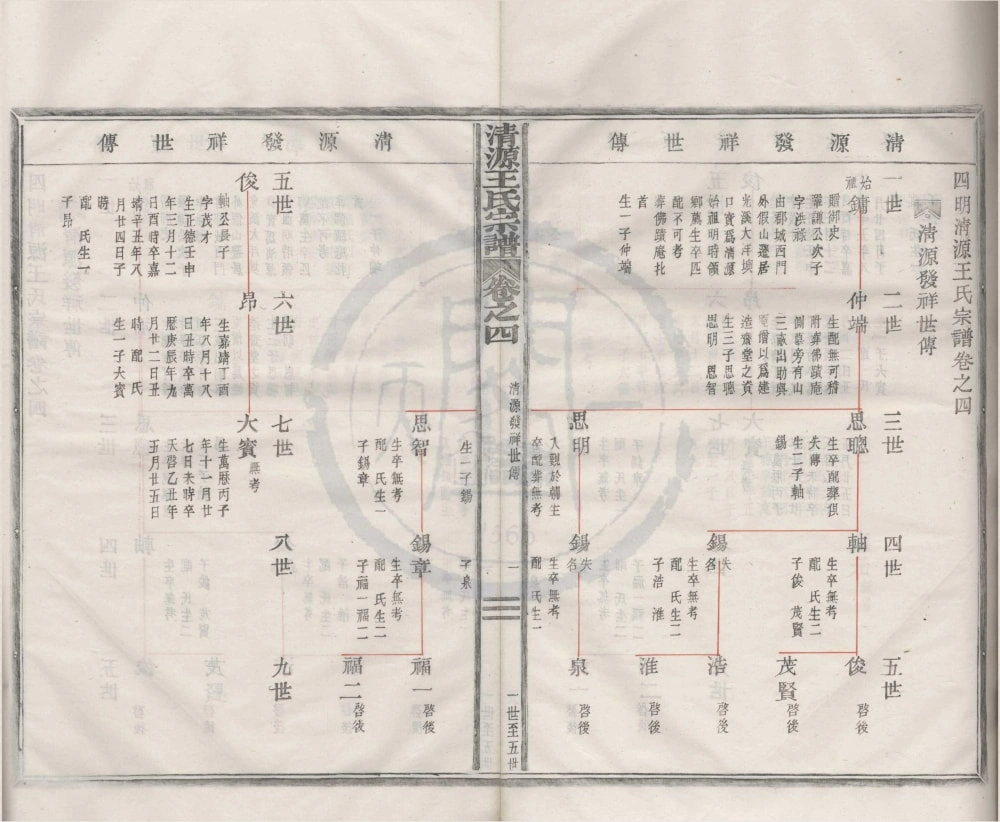 四明清源王氏宗譜卷之四
清源發祥世傳
清源發祥世傳
一世
始祖
鏞
贈御史
肇謙公次子
字洪福
由鄞城西門
外假山遷居
光溪大洋墺
口實爲清源
始祖明時領
鄉薦生卒匹
配不可考
葬佛蹟庵圠
首
生一子仲端
二世
仲端
生配無可稽
附葬佛蹟庵
側墓旁有山
三畝出助與
僧以爲建
造齋堂之資
生三子思聰
思明 思智
三世
思聰
生卒配葬俱
失傳
生二子軸
錫
思明
入覲於朝主
卒配葬無考
生一子錫
思智
生卒無考
配 氏生一
子錫章
四世
軸
生卒無考
配 氏生二
子俊 茂賢
錫
失名
生卒無考
配 氏生二
子浩 淮
錫
失名
生卒無考
配 氏生一
子泉
錫章
生卒無考
配 氏生二
子福一福二
五世
俊 啓後
茂賢 啓後
浩 啓後
淮 啓後
泉 啓後
福一 啓後
福二 啓後
清源王氏宗譜
卷之四
清源發祥世傳
一
一世至五世
清源發祥世傳
五世
俊
軸公長子
字茂才
生正德壬申
年三月十二
日酉時卒嘉
靖辛丑年八
月廿四日子
時
配 氏生一
子昂
六世
昂
生嘉靖丁酉
年八月十八
日丑時卒萬
曆庚辰年九
月廿二日丑
時 配 氏
生一子大賓
七世
大賓 無考
生萬曆丙子
年十一月廿
七日未時卒
天啓乙丑年
五月廿五日
八世
九世